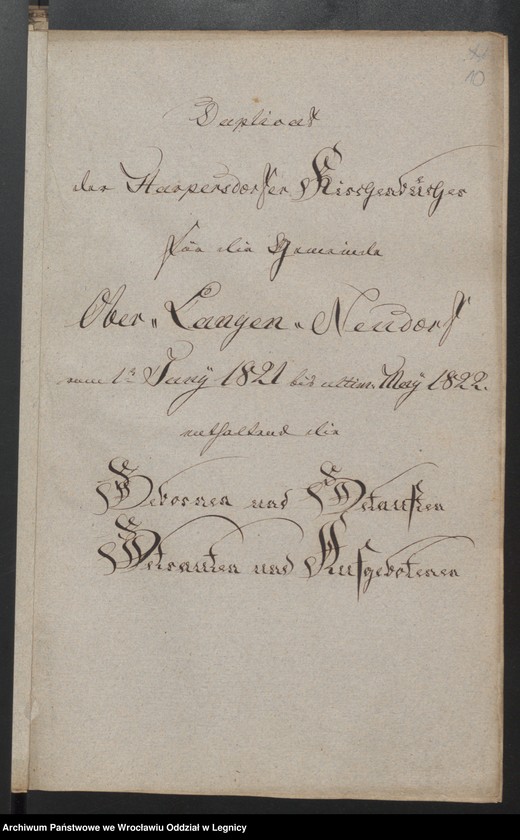 10
Duplicat
der Harpersdorfer Kirchenbücher
für die Gemeinde
Ober„ Langen„ Neudorf
vom 1t Juny 1821 bis ultim. May 1822.
enthaltend die
Gebornen und Getauften
Getrauten und Aufgebotenen
Archiwum Państwowe we Wrocławiu Oddział w Legnicy